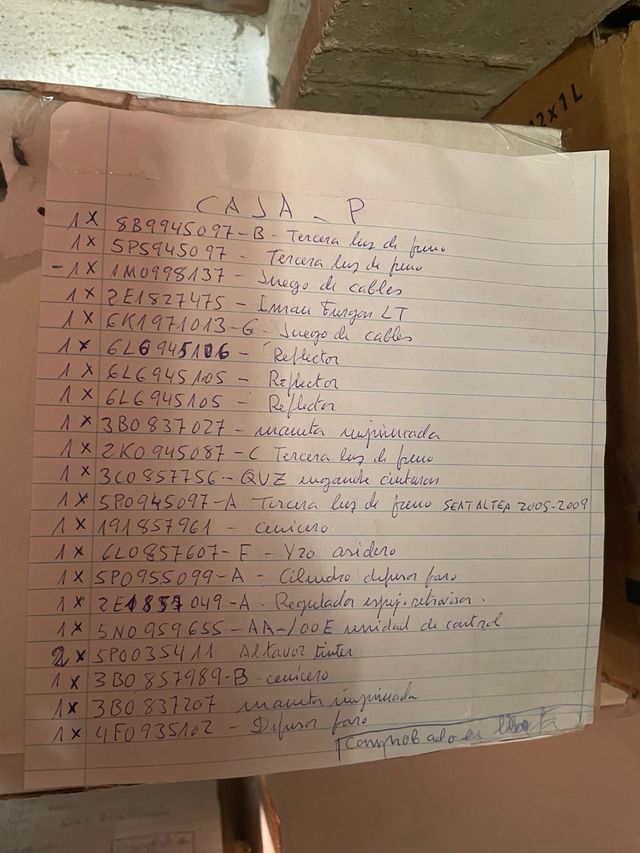 12x1L
CAJA - P
1 x 8B9945097-B - Tercera luz de freno
1 x 5P5945097 - Tercera luz de freno
-1 x 1M0998137 - Juego de cables
1 x 2E1827475 - Iman Furgon LT
1 x 6K1971013-G - Juego de cables
1 x 6L6945106 - Reflector
1 x 6L6945105 - Reflector
1 x 6L6945105 - Reflector
1 x 3B0837027 - maneta imprimada
1 x 2K0945087 - C Tercera luz de freno
1 x 3C0857756 - QVZ enganche cinturon
1 x 5P0945097-A Tercera luz de freno SEAT ALTEA 2005-2009
1 x 191857961 - cenicero
1 x 6L0857607-F - Y20 asidero
1 x 5P0955099-A - Cilindro difusor faro
1 x 2E1857049-A. Regulador espej. retrovisor.
1 x 5N0959655-AA-/00E unidad de control
2 x 5P0035411 Altavoz
1 x 3B0857989-B - cenicero
1 x 3B0837207 maneta imprimada
1 x 4F0935102 - Difusor faro
Comprobado en